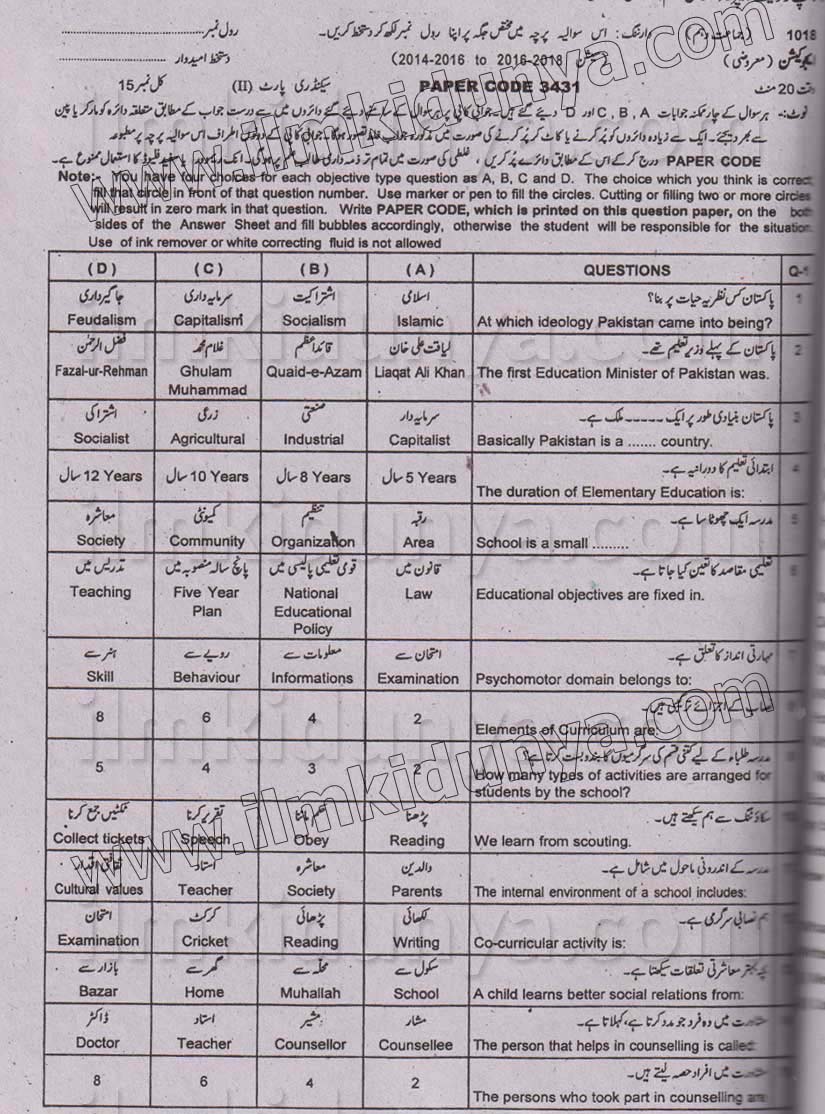 رول نمبر
وارننگ: اس سوالیہ پرچہ میں مختص جگہ پر اپنا رول نمبر لکھ کر دستخط کریں۔
(جماعت دہم)
1018
دستخط امیدوار
(2014-2016 to 2016-2018) سیشن
ایجوکیشن (معروضی)
کل نمبر 15
سیکنڈری پارٹ (II)
PAPER CODE 3431
وقت 20 منٹ
نوٹ:- ہر سوال کے چار ممکنہ جوابات A ,B ,C اور D دیئے گئے ہیں۔ جوابی کاپی پر ہر سوال کے سامنے دیئے گئے دائروں میں سے درست جواب کے مطابق متعلقہ دائرہ کو مارکر یا پین
سے بھر دیجئے۔ ایک سے زیادہ دائروں کو پُر کرنے یا کاٹ کر پُر کرنے کی صورت میں مذکورہ جواب غلط تصور ہوگا۔ جوابی کاپی کے دونوں اطراف اس سوالیہ پرچہ پر مطبوعہ
PAPER CODE درج کر کے اس کے مطابق دائرے پُر کریں، غلطی کی صورت میں تمام تر ذمہ داری طالب علم پر ہوگی۔ انک ریموور یا سفید فلیوڈ کا استعمال ممنوع ہے۔
Note:- You have four choices for each objective type question as A, B, C and D. The choice which you think is correct
fill that circle in front of that question number. Use marker or pen to fill the circles. Cutting or filling two or more circles
will result in zero mark in that question. Write PAPER CODE, which is printed on this question paper, on the both
sides of the Answer Sheet and fill bubbles accordingly, otherwise the student will be responsible for the situation
Use of ink remover or white correcting fluid is not allowed
(D) (C) (B) (A) QUESTIONS Q-1
جاگیرداری سرمایہ داری اشتراکیت اسلامی پاکستان کس نظریہ حیات پر بنا؟ 1
Feudalism Capitalism Socialism Islamic At which ideology Pakistan came into being?
فضل الرحمٰن غلام محمد قائداعظم لیاقت علی خان پاکستان کے پہلے وزیر تعلیم تھے۔ 2
Fazal-ur-Rehman Ghulam Muhammad Quaid-e-Azam Liaqat Ali Khan The first Education Minister of Pakistan was.
اشتراکی زرعی صنعتی سرمایہ دار پاکستان بنیادی طور پر ایک ----- ملک ہے۔ 3
Socialist Agricultural Industrial Capitalist Basically Pakistan is a ....... country.
ابتدائی تعلیم کا دورانیہ ہے۔ 4
12 Years سال 10 Years سال 8 Years سال 5 Years سال The duration of Elementary Education is:
معاشرہ کمیونٹی تنظیم رقبہ مدرسہ ایک چھوٹا سا ہے۔ 5
Society Community Organization Area School is a small .........
تدریس میں پانچ سالہ منصوبہ میں قومی تعلیمی پالیسی میں قانون میں تعلیمی مقاصد کا تعین کیا جاتا ہے۔ 6
Teaching Five Year Plan National Educational Policy Law Educational objectives are fixed in.
ہنر سے رویے سے معلومات سے امتحان سے مہارتی انداز کا تعلق ہے۔ 7
Skill Behaviour Informations Examination Psychomotor domain belongs to:
نصاب کے اجزائے ترکیبی ہیں۔
8 6 4 2 Elements of Curriculum are:
مدرسہ طلباء کے لیے کتنی قسم کی سرگرمیوں کا بندوبست کرتا ہے؟
5 4 3 2 How many types of activities are arranged for
students by the school?
ٹکٹیں جمع کرنا تقریر کرنا حکم ماننا پڑھنا سکاؤٹنگ سے ہم سیکھتے ہیں۔
Collect tickets Speech Obey Reading We learn from scouting.
ثقافتی اقدار استاد معاشرہ والدین مدرسہ کے اندرونی ماحول میں شامل ہے۔
Cultural values Teacher Society Parents The internal environment of a school includes:
امتحان کرکٹ پڑھائی لکھائی ہم نصابی سرگرمی ہے۔
Examination Cricket Reading Writing Co-curricular activity is:
بازار سے گھر سے محلہ سے سکول سے بچہ بہتر معاشرتی تعلقات سیکھتا ہے۔
Bazar Home Muhallah School A child learns better social relations from:
ڈاکٹر استاد مشیر مشار میں وہ فرد جو مدد کرتا ہے، کہلاتا ہے۔
Doctor Teacher Counsellor Counsellee The person that helps in counselling is called:
میں افراد حصہ لیتے ہیں۔
8 6 4 2 The persons who took part in counselling are
www.ilmkidunya.com
www.ilmkidunya.com
ilmkidunya.com